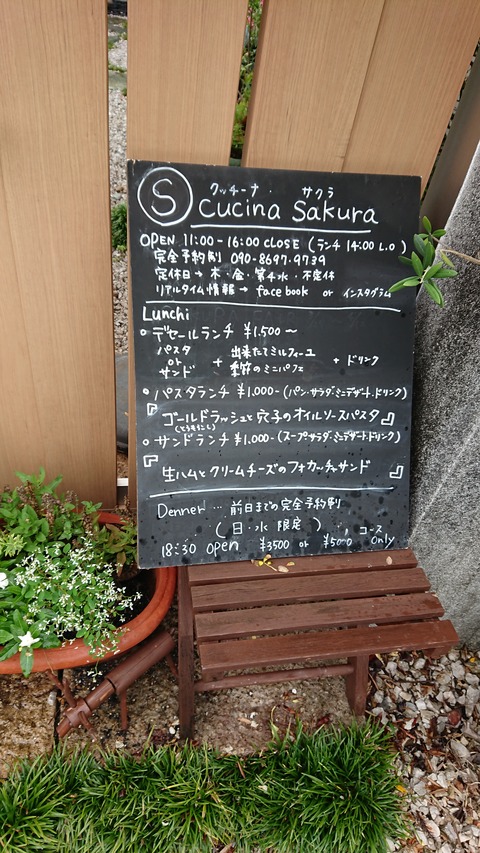 S
クッチーナ サクラ
Cucina Sakura
OPEN 11:00-16:00 CLOSE (ランチ 14:00 L.O)
完全予約制 090-8697-9739
定休日→ 木・金・第4水・不定休
リアルタイム情報→ facebook or インスタグラム
Lunchi
○デセールランチ ¥1,500〜
パスタ
or
サンド
+
出来たてミルフィーユ
季節のミニパフェ
+ ドリンク
○パスタランチ ¥1,000-(パン・サラダ・ミニデザート・ドリンク)
『ゴールドラッシュと穴子のオイルソースパスタ』
(とうもろこし)
○サンドランチ ¥1,000-(スープ・サラダ・ミニデザート・ドリンク)
『生ハムとクリームチーズのフォカッチャサンド』
Denner … 前日までの完全予約制
(日・水 限定)
18:30 open ¥3500 or ¥5000 コース only